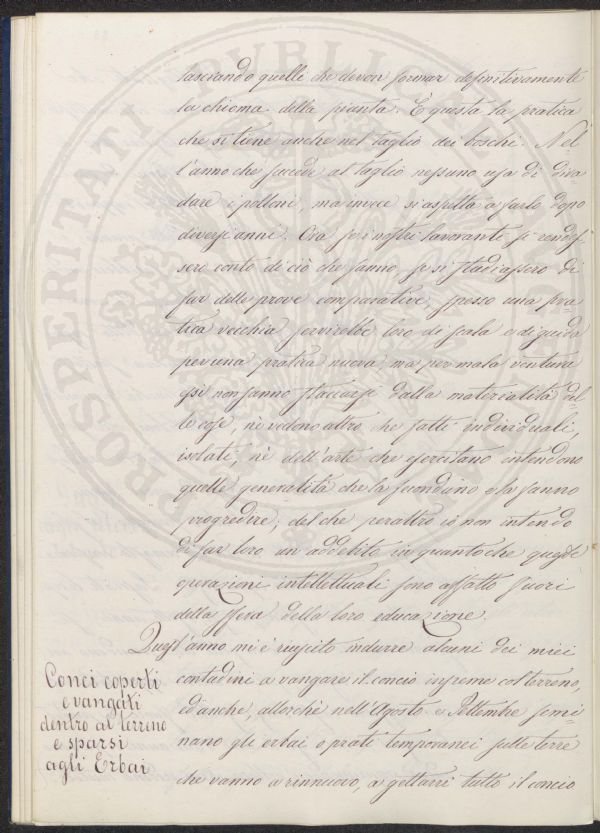 lasciando quelle che devon formar definitivamente
la chioma della pianta. È questa la pratica
che si tiene anche nel taglio dei boschi. Nel
l'anno che succede al taglio nessuno usa di dira=
dare i polloni, ma invece si aspetta a farlo dopo
diversi anni. Ora se i nostri lavoranti si rendes
sero conto di ciò che fanno, se si studiassero di
far delle prove comparative, spesso una pra=
tica vecchia servirebbe loro di scala e di guida
per una pratica nuova; ma per mala ventura
essi non sanno staccarsi dalla materialità del
le cose, nè vedono altro che fatti individuali,
isolati, nè dell'arte che esercitano intendono
quelle generalità che la fecondano e la fanno
progredire; del che peraltro io non intendo
di far loro un addebito in quanto che queste
operazioni intellettuali sono affatto fuori
della sfera della loro educazione.
Quest'anno mi è riuscito indurre alcuni dei miei
contadini a vangare il concio insieme col terreno,
ed anche, allorchè nell'Agosto e Settembre semi=
nano gli erbai o prati temporanei sulle terre
che vanno a rinnuovo, a gettarvi tutto il concio
Conci coperti
e vangati
dentro al terreno
e sparsi
agli Erbai
PROSPERITATI PUBLICAE